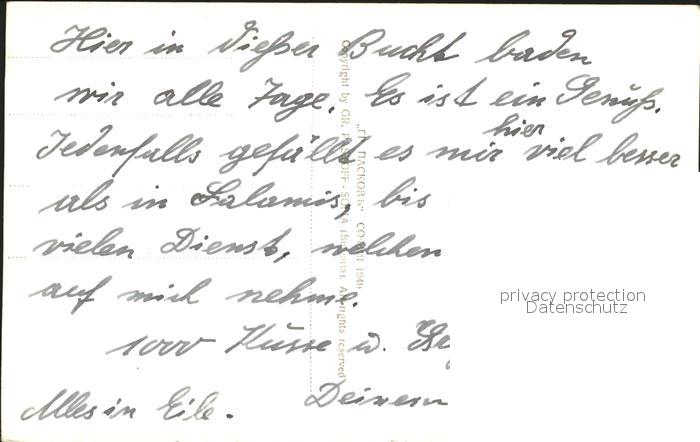 Hier in dießer Bucht baden
wir alle Tage. Es ist ein Genuß.
Jedenfalls gefällt es mir hier viel besser
als in Salamis, bis
vielen Dienst, welchen
auf mich nehme.
1000 Küsse u.
Alles in Eile.
Deinem
„ГР. ПАСКОВЪ" СОФИЯ 1940
Copyright by GR. PASKOFF - SOFIA (Bulgaria). All rights reserved
privacy protection
Datenschutz